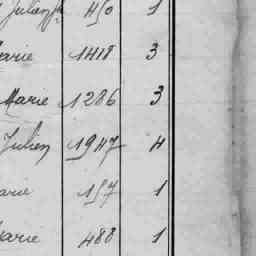 Julien 450 1
arie 1418 3
Marie 1286 3
Julien 1947 4
arie 157 1
arie 488 1